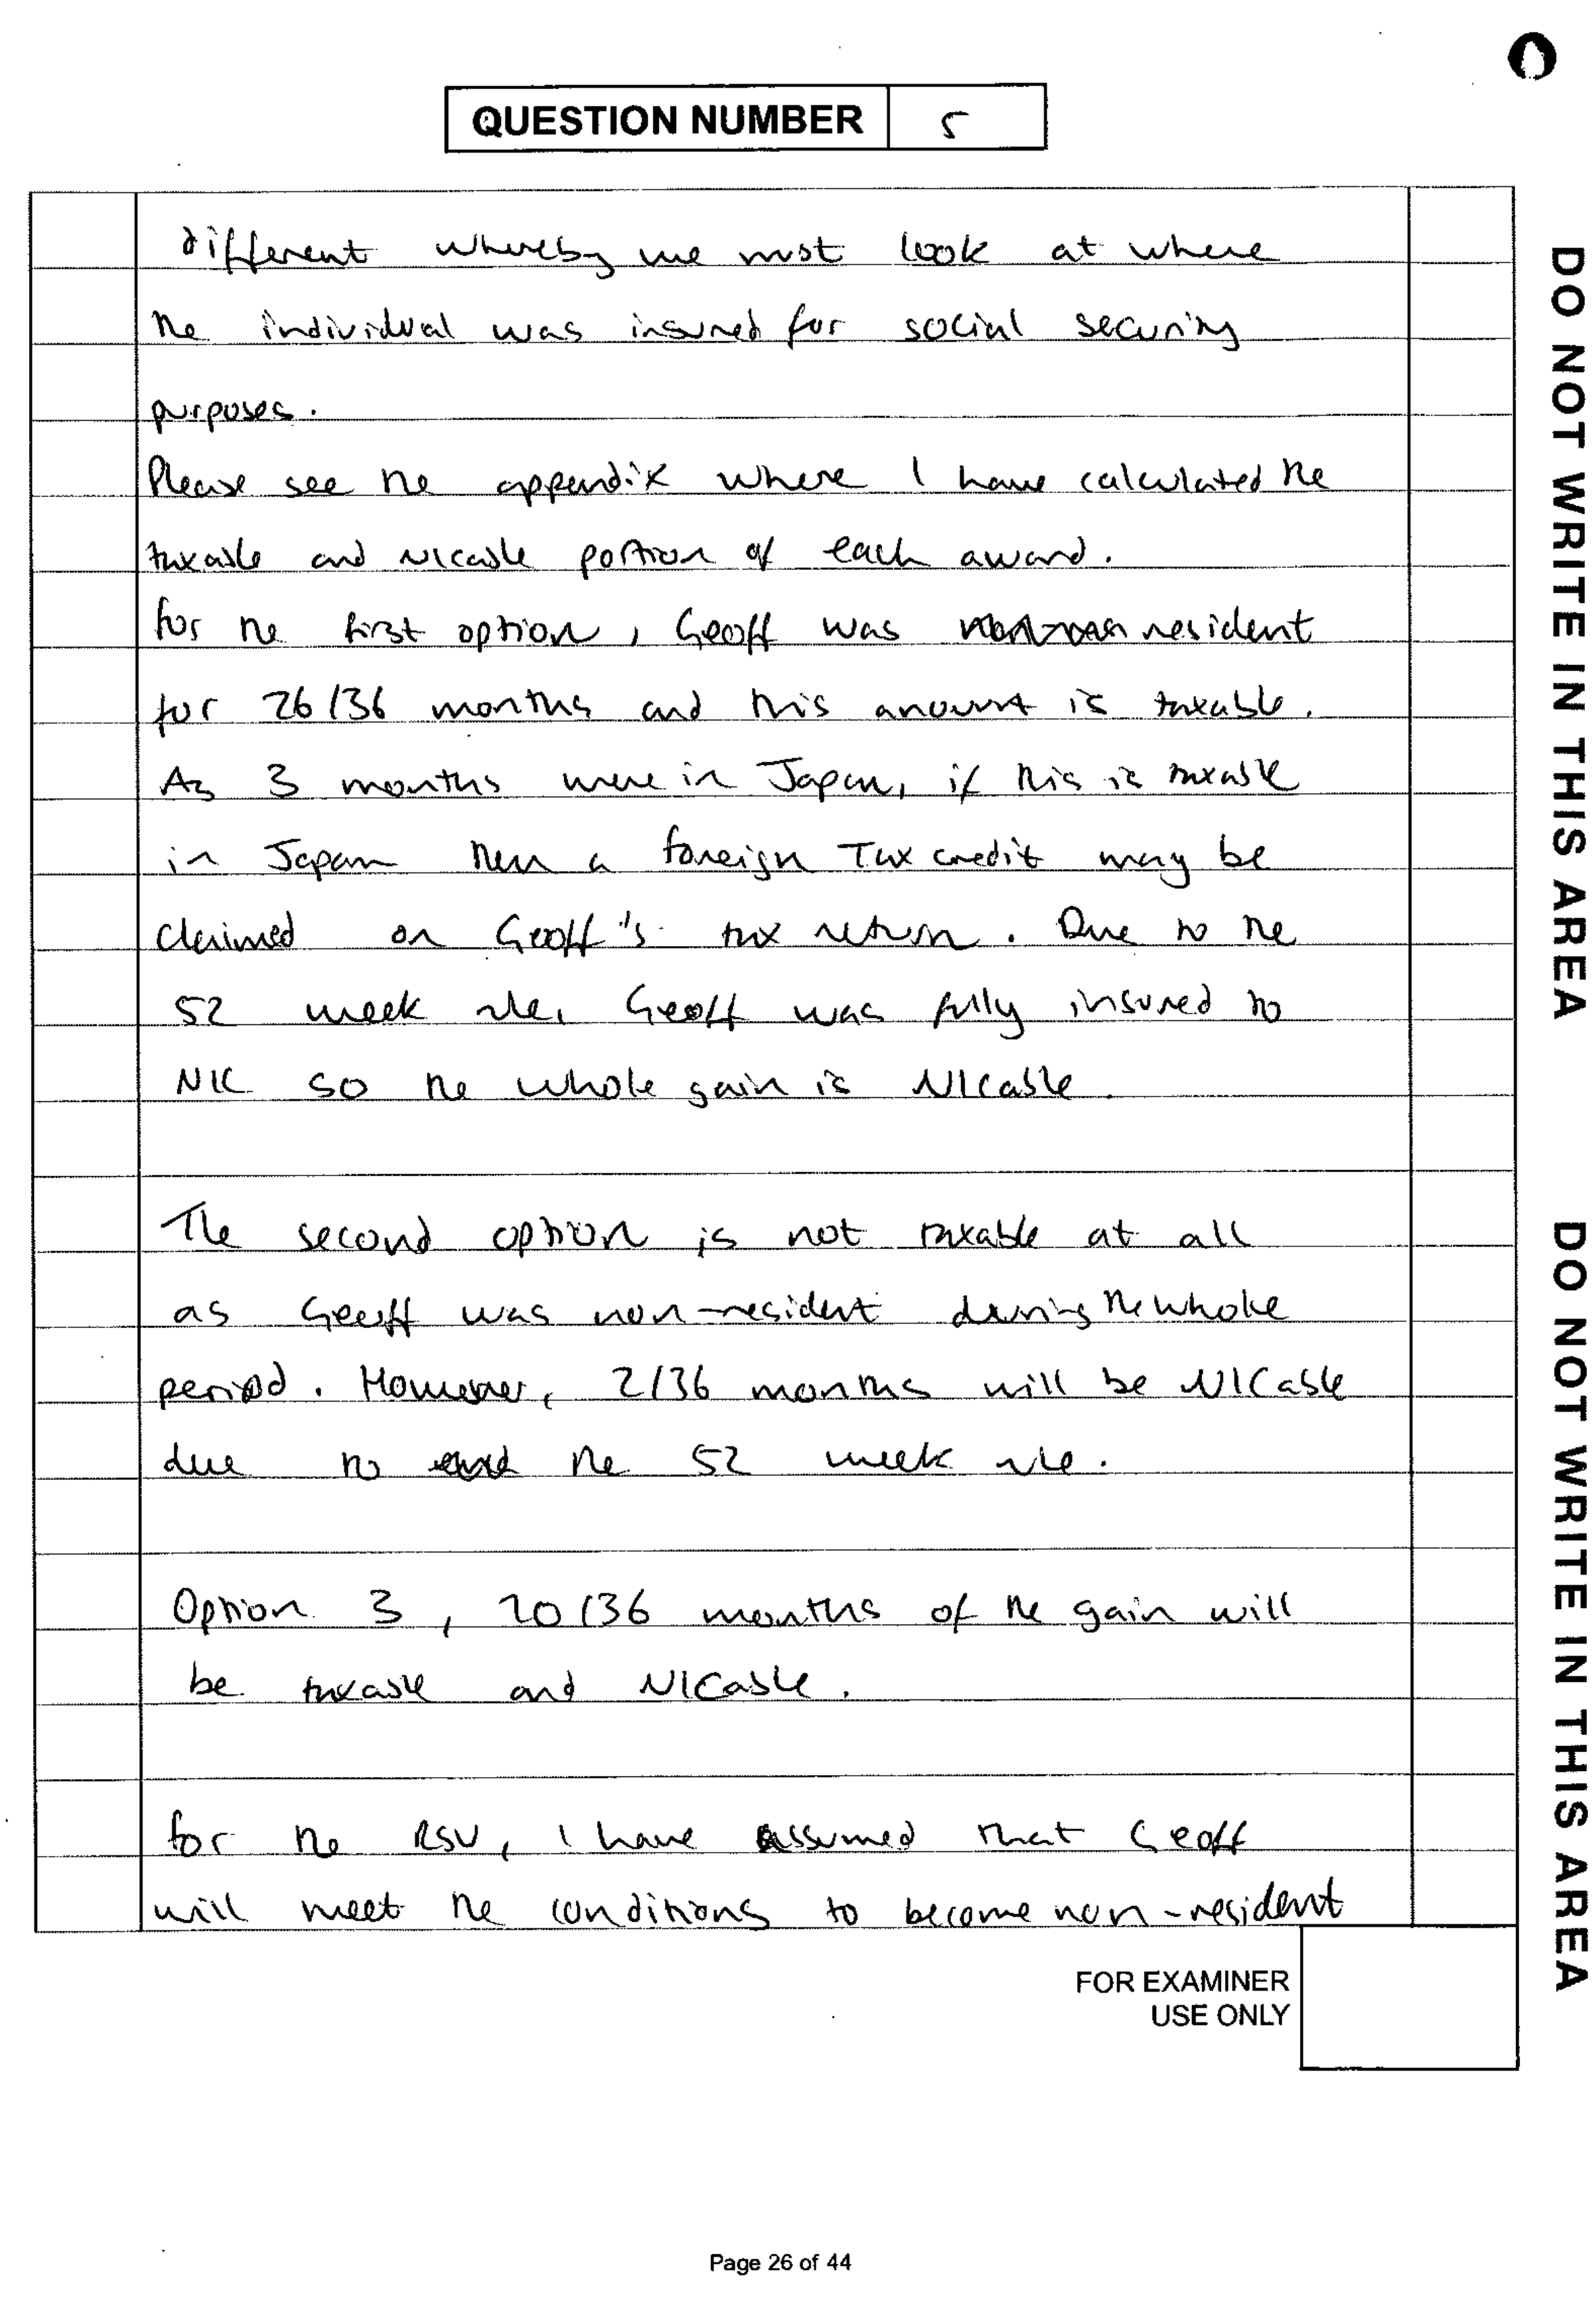 QUESTION NUMBER 5
different whereby we must look at where
the individual was insured for social security
purposes.
Please see the appendix where I have calculated the
taxable and NICable portion of each award.
for the first option, Geoff was resident
for 26/36 months and this amount is taxable.
As 3 months were in Japan, if this is taxable
in Japan then a foreign Tax credit may be
claimed on Geoff's tax return. Due to the
52 week rule, Geoff was fully insured to
NIC so the whole gain is NICable.
The second option is not taxable at all
as Geoff was non-resident during the whole
period. However, 2/36 months will be NICable
due to the 52 week rule.
Option 3, 20/36 months of the gain will
be taxable and NICable.
for the RSU, I have assumed that Geoff
will meet the conditions to become non-resident
FOR EXAMINER
USE ONLY
Page 26 of 44
DO NOT WRITE IN THIS AREA
DO NOT WRITE IN THIS AREA